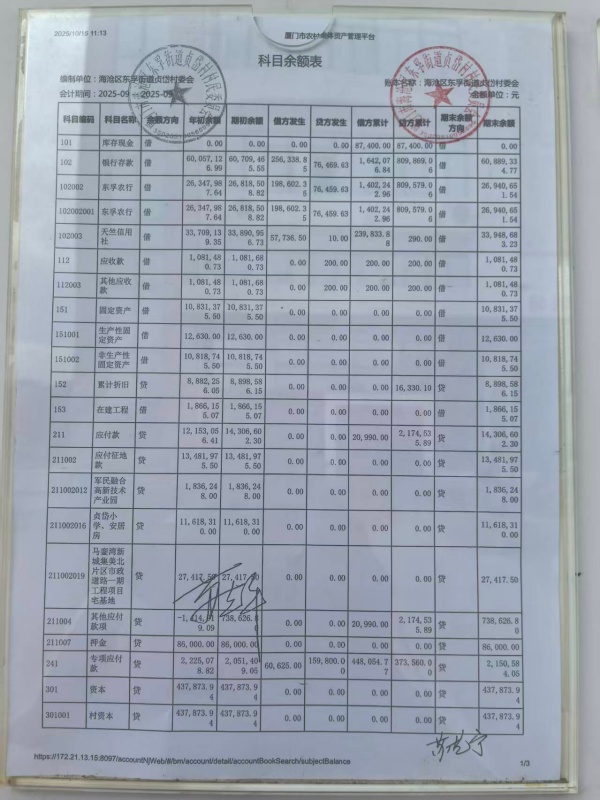 2025/10/15 11:13 厦门市农村集体资产管理平台
科目余额表
编制单位：海沧区东孚街道贞岱村委会 账本名称：海沧区东孚街道贞岱村委会
会计期间：2025-09 2025-09 金额单位：元
科目编码 科目名称 余额方向 年初余额 期初余额 借方发生 贷方发生 借方累计 贷方累计 期末余额方向 期末余额
101 库存现金 借 0.00 0.00 0.00 0.00 87,400.00 87,400.00 借 0.00
102 银行存款 借 60,057,126.99 60,709,465.56 256,338.85 76,469.63 1,642,076.84 809,869.06 借 60,889,334.77
102002 东孚农行 借 26,347,987.64 26,818,508.82 198,602.35 76,459.63 1,402,242.96 809,579.06 借 26,940,651.54
102002001 东孚农行 借 26,347,987.64 26,818,508.82 198,602.35 76,459.63 1,402,242.96 809,579.06 借 26,940,651.54
102003 天竺信用社 借 33,709,139.35 33,890,956.73 57,736.50 10.00 239,833.88 290.00 借 33,948,683.23
112 应收款 借 1,081,480.73 1,081,680.73 0.00 200.00 200.00 200.00 借 1,081,480.73
112003 其他应收款 借 1,081,480.73 1,081,680.73 0.00 200.00 200.00 200.00 借 1,081,480.73
151 固定资产 借 10,831,375.50 10,831,375.50 0.00 0.00 0.00 0.00 借 10,831,375.50
151001 生产性固定资产 借 12,630.00 12,630.00 0.00 0.00 0.00 0.00 借 12,630.00
151002 非生产性固定资产 借 10,818,745.50 10,818,745.50 0.00 0.00 0.00 0.00 借 10,818,745.50
152 累计折旧 贷 8,882,256.05 8,898,586.15 0.00 0.00 0.00 16,330.10 贷 8,898,586.15
153 在建工程 借 1,866,155.07 1,866,155.07 0.00 0.00 0.00 0.00 借 1,866,155.07
211 应付款 贷 12,153,056.41 14,306,602.30 0.00 0.00 20,990.00 2,174,535.89 贷 14,306,602.30
211002 应付征地款 贷 13,481,975.50 13,481,975.50 0.00 0.00 0.00 0.00 贷 13,481,975.50
211002012 军民融合高新技术产业园 贷 1,836,248.00 1,836,248.00 0.00 0.00 0.00 0.00 贷 1,836,248.00
211002016 贞岱小学、安居房 贷 11,618,310.00 11,618,310.00 0.00 0.00 0.00 0.00 贷 11,618,310.00
211002019 马銮湾新城集美北片区市政道路一期工程项目宅基地 贷 27,417.50 27,417.50 0.00 0.00 0.00 0.00 贷 27,417.50
211004 其他应付款项 贷 738,626.80 0.00 0.00 20,990.00 2,174,535.89 贷 738,626.80
211007 押金 贷 86,000.00 86,000.00 0.00 0.00 0.00 0.00 贷 86,000.00
241 专项应付款 贷 2,225,078.82 2,051,409.05 60,625.00 159,800.00 448,054.77 373,560.00 贷 2,150,584.05
301 资本 贷 437,873.94 437,873.94 0.00 0.00 0.00 0.00 贷 437,873.94
301001 村资本 贷 437,873.94 437,873.94 0.00 0.00 0.00 0.00 贷 437,873.94
https://172.21.13.15:8097/accountNjWeb/#/bm/account/detail/accountBookSearch/subjectBalance 1/3